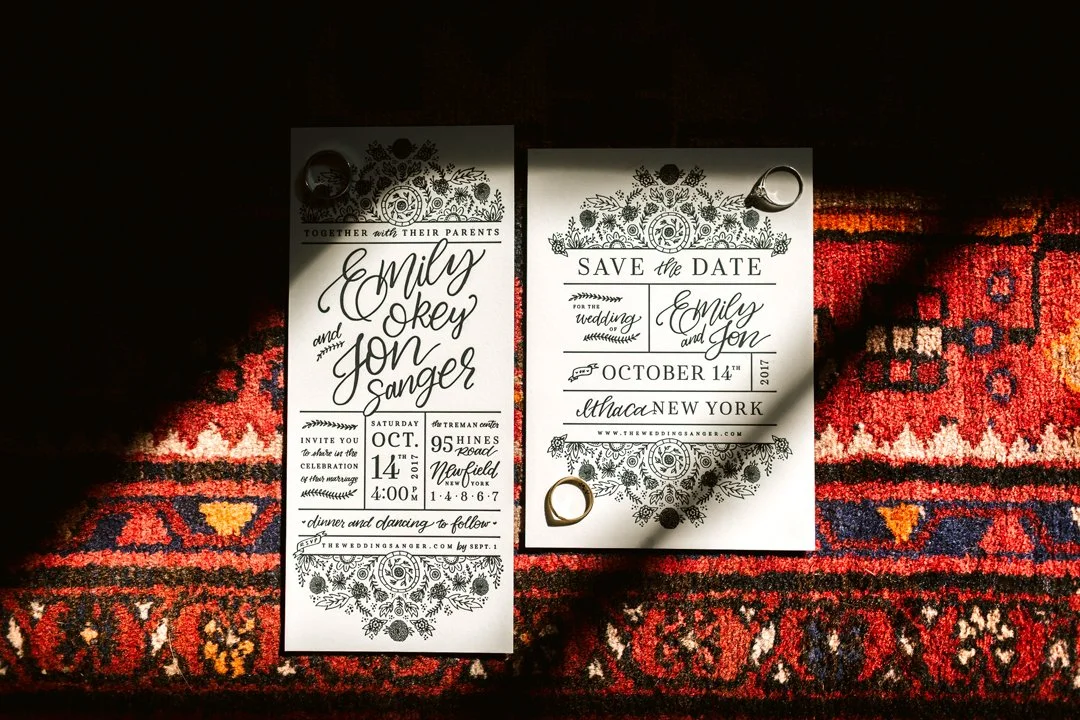 TOGETHER with THEIR PARENTS
Emily
Okey
and
Jon
Sanger
INVITE YOU
to share in the
CELEBRATION
of their marriage
SATURDAY
OCT.
14TH 2017
4:00 PM
the TREMAN center
95 HINES
Road
Newfield
NEW YORK
1·4·8·6·7
dinner and dancing to follow
RSVP
THEWEDDINGSANGER.COM by SEPT. 1
SAVE the DATE
FOR THE
wedding
OF
Emily
and Jon
ON
OCTOBER 14TH
2017
Ithaca NEW YORK
WWW.THEWEDDINGSANGER.COM